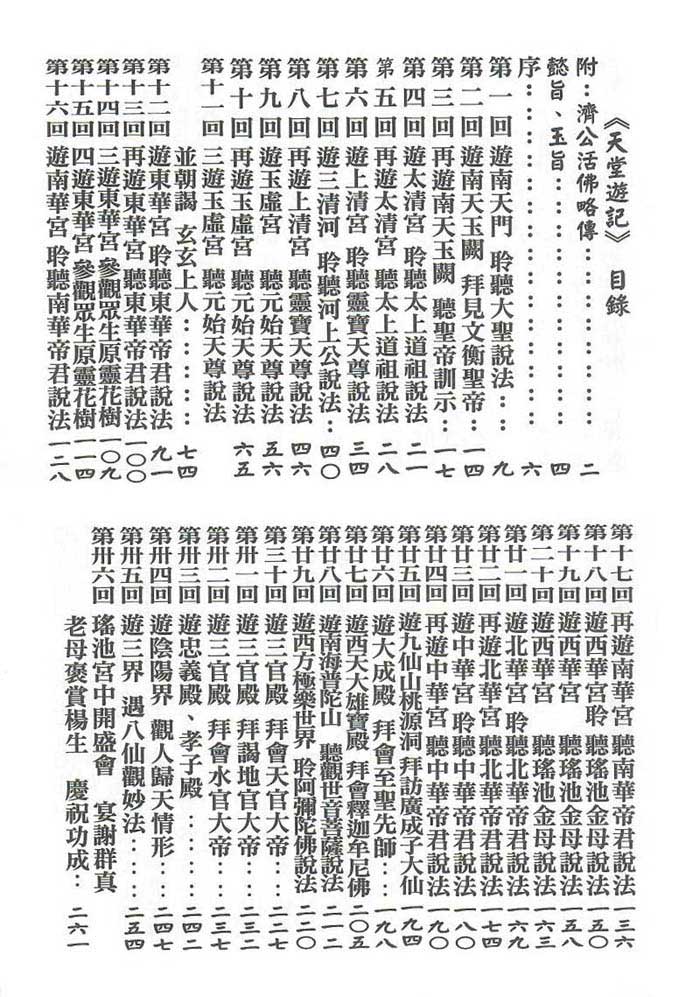 《天堂遊記》 目錄
附：濟公活佛略傳：：：：：：：二
懿旨、玉旨：：：：：：：：：：四
序：：：：：：：：：：：：：：六
第一回 遊南天門 聆聽大聖說法：：九
第二回 遊南天玉闕 拜見文衡聖帝：一四
第三回 再遊南天玉闕 聽聖帝訓示：一七
第四回 遊太清宮 聆聽太上道祖說法 二一
第五回 再遊太清宮 聽太上道祖說法 二八
第六回 遊上清宮 聆聽靈寶天尊說法 三四
第七回 遊三清河 聆聽河上公說法：四〇
第八回 再遊上清宮 聽靈寶天尊說法 四六
第九回 遊玉虛宮 聽元始天尊說法 五六
第十回 再遊玉虛宮 聽元始天尊說法 六五
第十一回 三遊玉虛宮 聽元始天尊說法
並朝謁 玄玄上人：：：：：七四
第十二回 遊東華宮 聆聽東華帝君說法 九一
第十三回 再遊東華宮 聽東華帝君說法 一〇〇
第十四回 三遊東華宮 參觀眾生原靈花樹 一〇九
第十五回 四遊東華宮 參觀眾生原靈花樹 一一四
第十六回 遊南華宮 聆聽南華帝君說法 一二八
第十七回 再遊南華宮 聽南華帝君說法 一三六
第十八回 遊西華宮 聆聽瑤池金母說法 一五〇
第十九回 遊西華宮 聽瑤池金母說法 一五八
第二十回 遊西華宮 聽瑤池金母說法 一六三
第廿一回 遊北華宮 聆聽北華帝君說法 一六九
第廿二回 再遊北華宮 聽北華帝君說法 一七四
第廿三回 遊中華宮 聆聽中華帝君說法 一八〇
第廿四回 再遊中華宮 聽中華帝君說法 一九〇
第廿五回 遊九仙山桃源洞 拜訪廣成子大仙 一九四
第廿六回 遊大成殿 拜會至聖先師：：一九八
第廿七回 遊西天大雄寶殿 拜會釋迦牟尼佛 二〇五
第廿八回 遊南海普陀山 聽觀世音菩薩說法 二一二
第廿九回 遊西方極樂世界 聆阿彌陀佛說法 二二〇
第三十回 遊三官殿 拜會天官大帝：：二二七
第卅一回 遊三官殿 拜謁地官大帝：：二三二
第卅二回 遊三官殿 拜會水官大帝：：二三七
第卅三回 遊忠義殿、孝子殿：：：：二四二
第卅四回 遊陰陽界 觀人歸天情形：：二四七
第卅五回 遊三界 遇八仙觀妙法：：：二五四
第卅六回 瑤池宮中開盛會 宴謝群真
老母褒賞楊生 慶祝功成：二六一